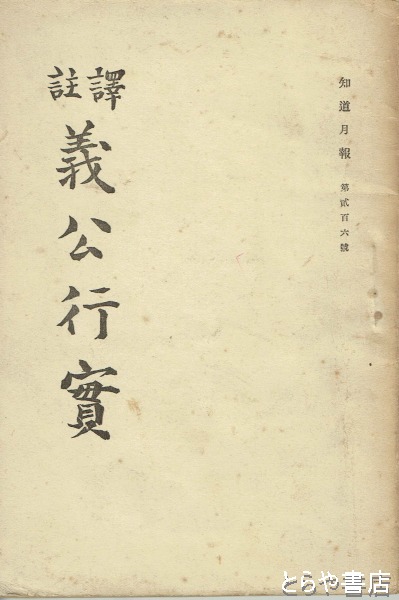 知道月報 第貳百六號
譯註
義公行實
とらや書店